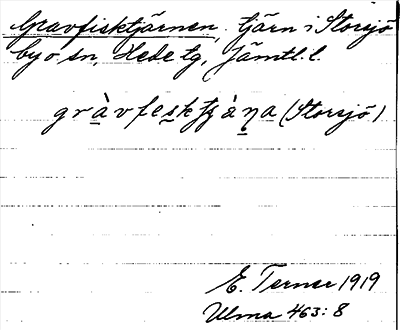 Gravfisktjärnen, tjärn i Storsjö
by o sn, Hede tg, Jämtl. l.
gràvfesktjàṇa (Storsjö)
E. Terner 1919
Ulma 463:8